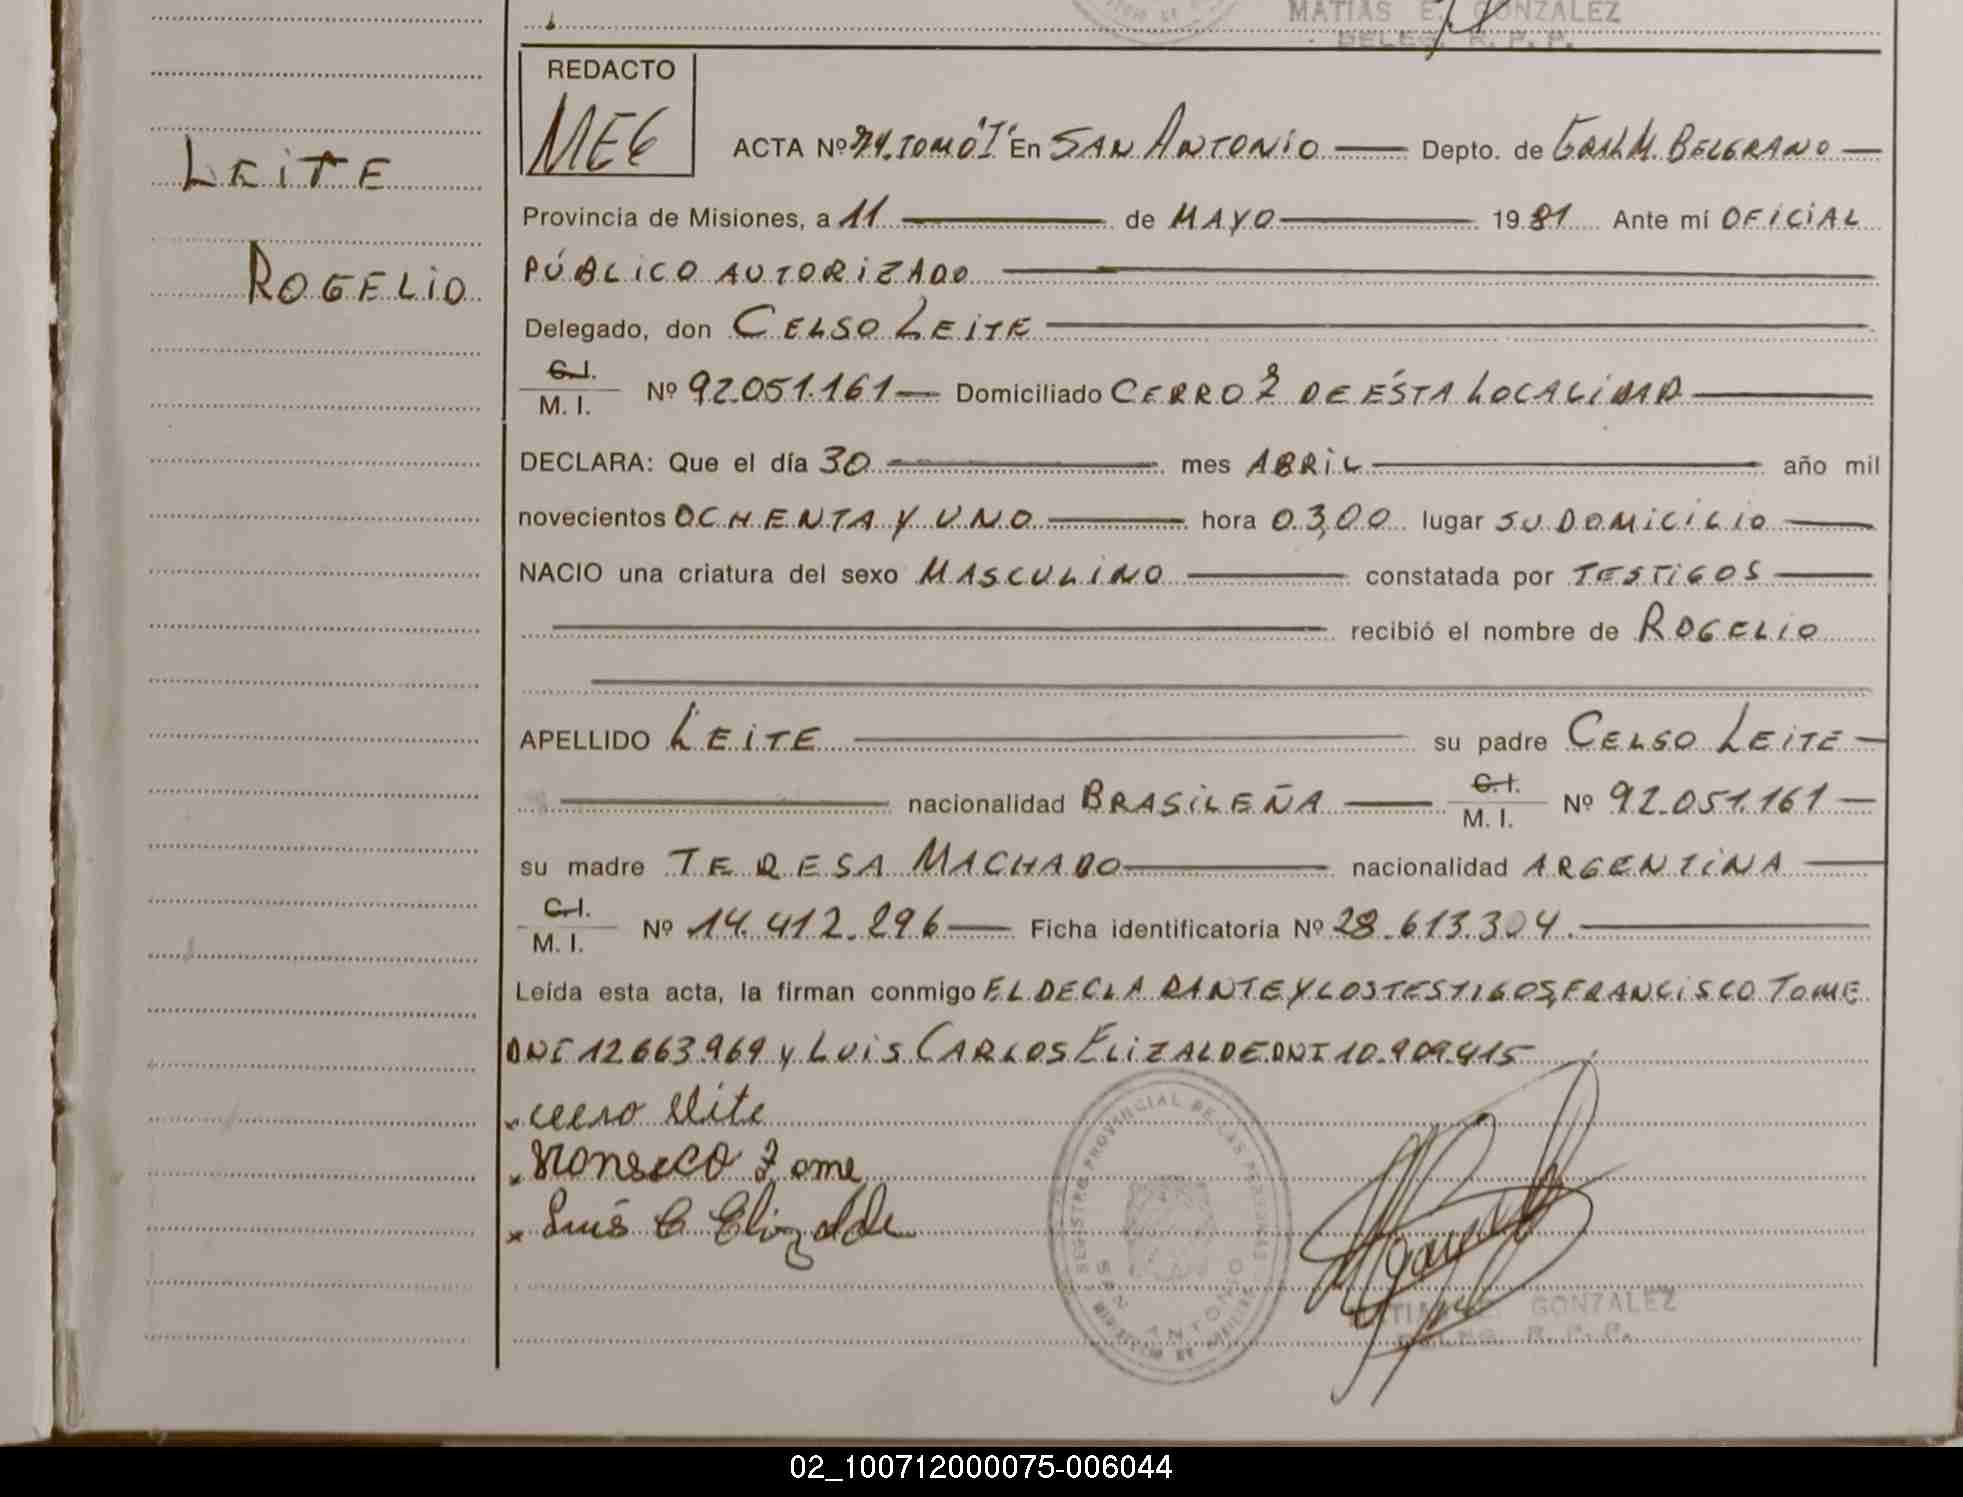 MATIAS E. GONZALEZ
DELEG. R. P. P.
REDACTO
MEG
LEITE
ROGELIO
ACTA Nº 74 TOMO "I" En SAN ANTONIO Depto. de GRAL M. BELGRANO
Provincia de Misiones, a 11 de MAYO 1981 Ante mí OFICIAL
PÚBLICO AUTORIZADO
Delegado, don CELSO LEITE
C.I.
M. I. Nº 92.051.161 Domiciliado CERRO 2 DE ÉSTA LOCALIDAD
DECLARA: Que el día 30 mes ABRIL año mil
novecientos OCHENTA Y UNO hora 03,00 lugar SU DOMICILIO
NACIO una criatura del sexo MASCULINO constatada por TESTIGOS
recibió el nombre de ROGELIO
APELLIDO LEITE su padre CELSO LEITE
nacionalidad BRASILEÑA C.I. M. I. Nº 92.051.161
su madre TERESA MACHADO nacionalidad ARGENTINA
C.I.
M. I. Nº 14.412.296 Ficha identificatoria Nº 28.613.304.
Leída esta acta, la firman conmigo EL DECLARANTE Y LOS TESTIGOS, FRANCISCO TOME
DNI 12.663.969 y LUIS CARLOS ELIZALDE DNI 10.909.415
Tome
Luis C Elizalde
REGISTRO PROVINCIAL DE LAS PERSONAS
SAN ANTONIO
GONZALEZ
R. P. P.
02_100712000075-006044